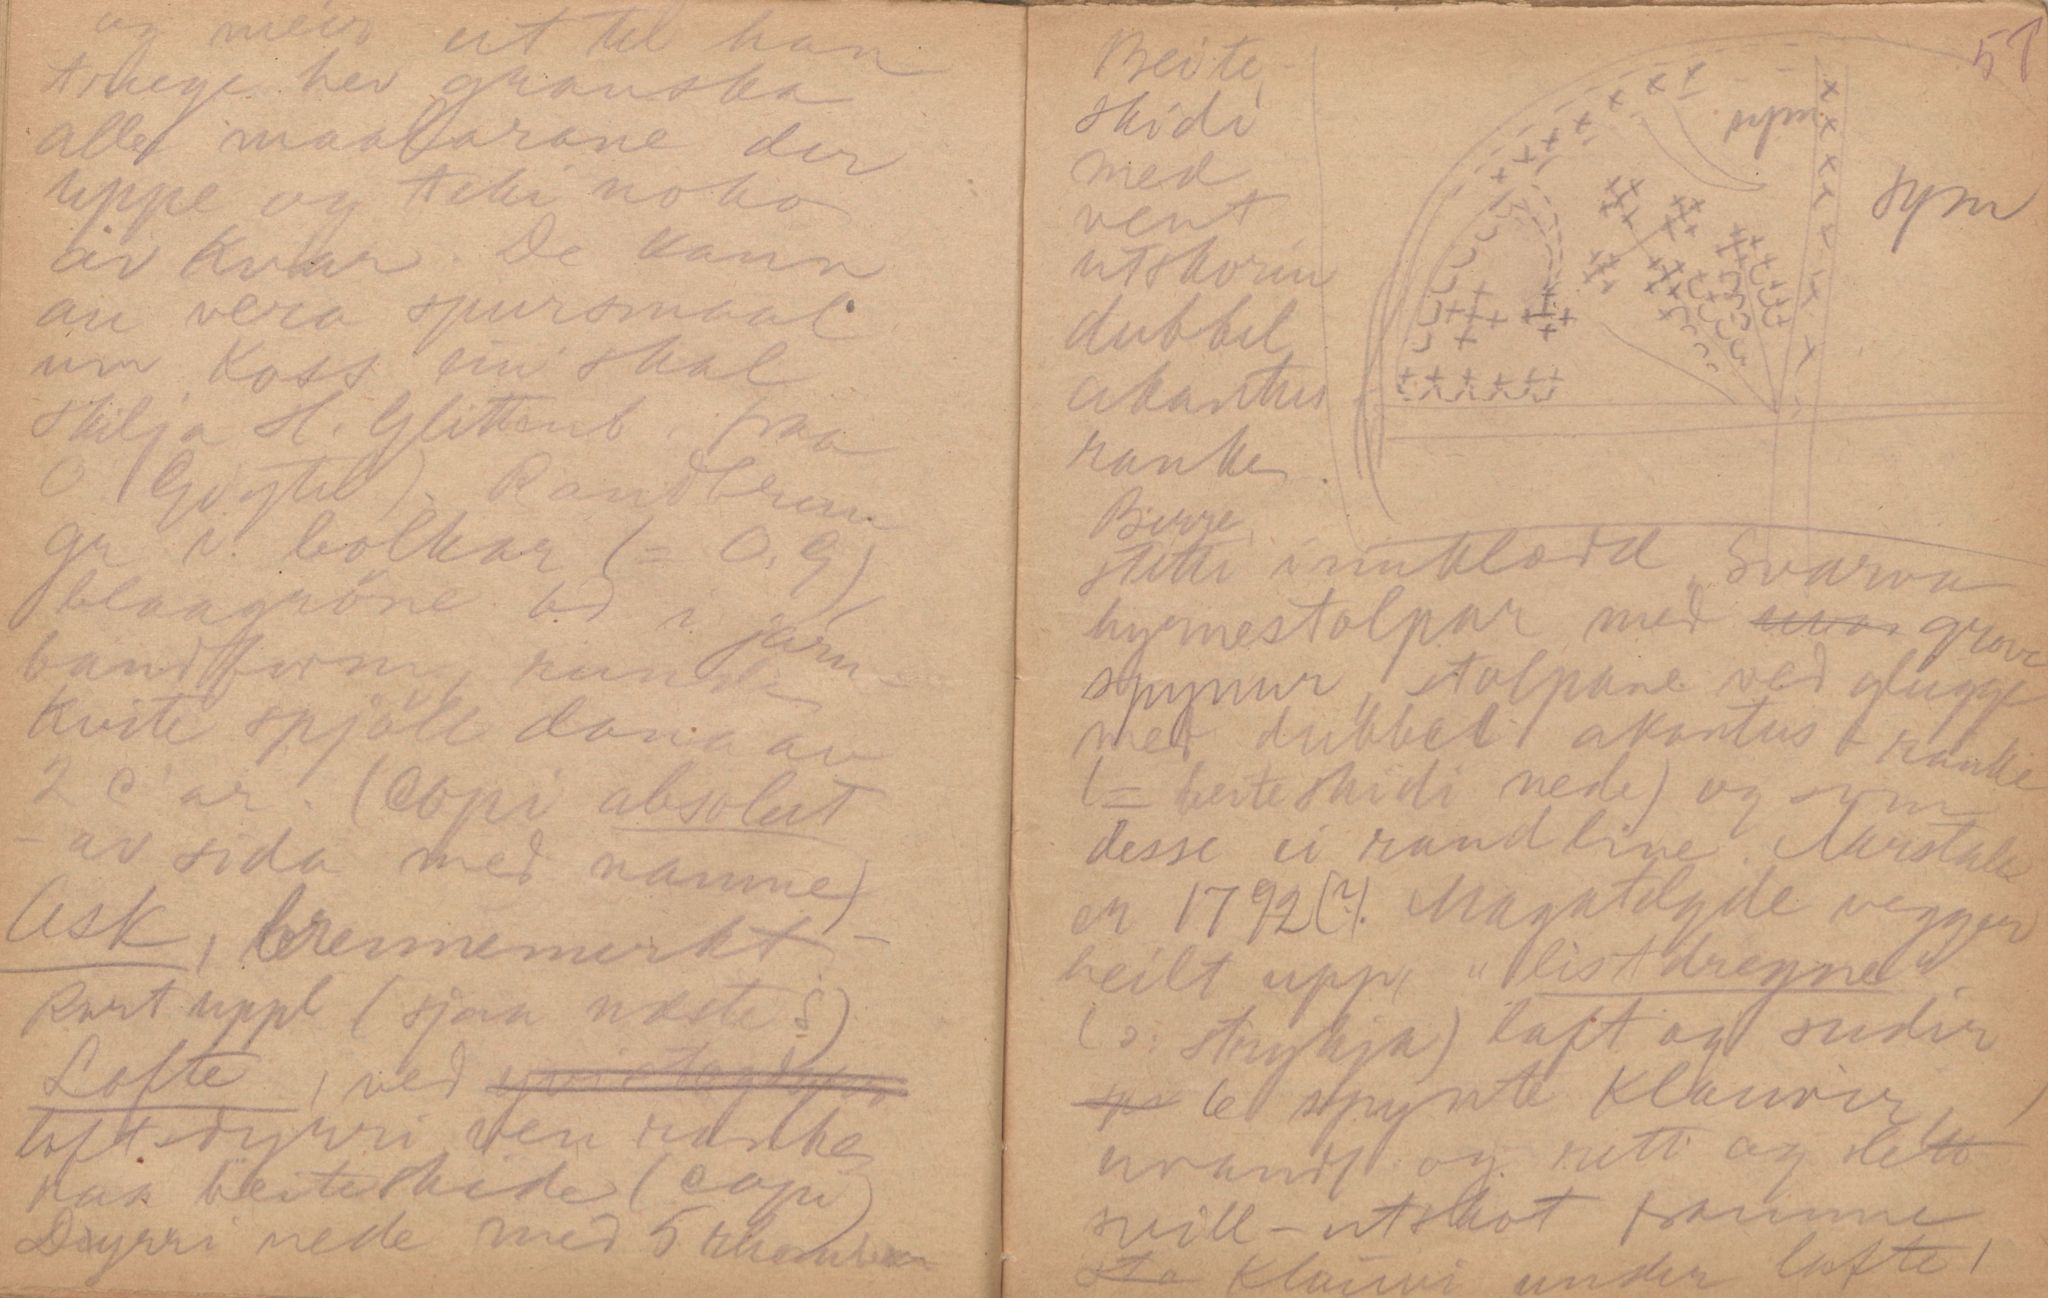 og meir ut til han
hev granska
alle maalarane der
uppe og teki noko
av kvar. De kann
au vera spursmaal
um koss ein skal
skilja H. Glittenb. fraa
O (Gøytil). Randbrun
gr i bolkar (= O. G)
blaagröne bd i jarn-
bandform, runde
kvite spjöll dana av
2 c'ar. (Copi absolut
- av sida med namne)
Ask, brennemerkt -
Rart uppl (sjaa næste S)
Lofte, ved
loft-dyrri ven ranke
paa beiteskide (copi)
Dyrri nede med 5
51
Beite-
skidi
med
vent
utskorin
dubbel
akantus
ranke.
sym
sym
Burre
stitti innklædd, Svarva
hyrnestolpar med grove
spynur, stolpane ved glugge
med dubbel akantus ranke
(= beiteskidi nede) og um
desse ei randline. Aarstale
er 1792(?). Magatelgde vegger
heilt upp, "listdregne"
(ɔ: strykja) loft og
6 spynte klauvir,
uvandl og rett og slett
svill-utskot framme
klauvi under lofte,